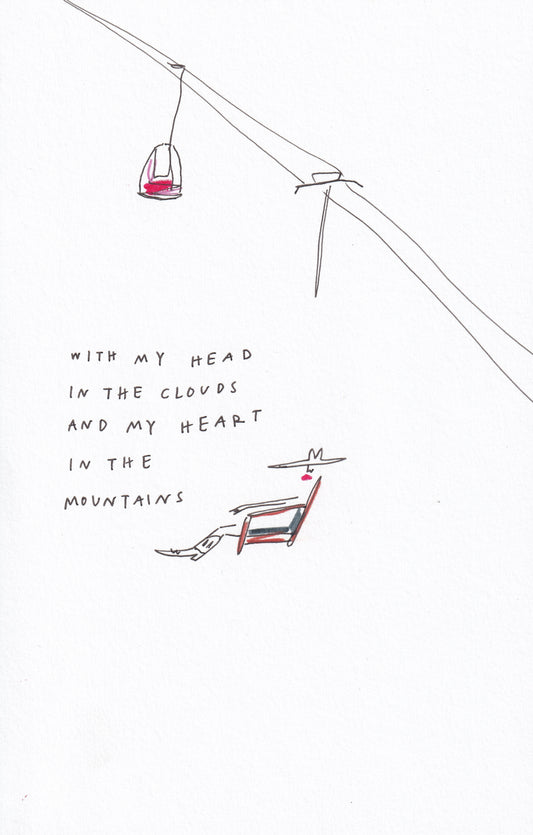 WITH MY HEAD
IN THE CLOUDS
AND MY HEART
IN THE
MOUNTAINS